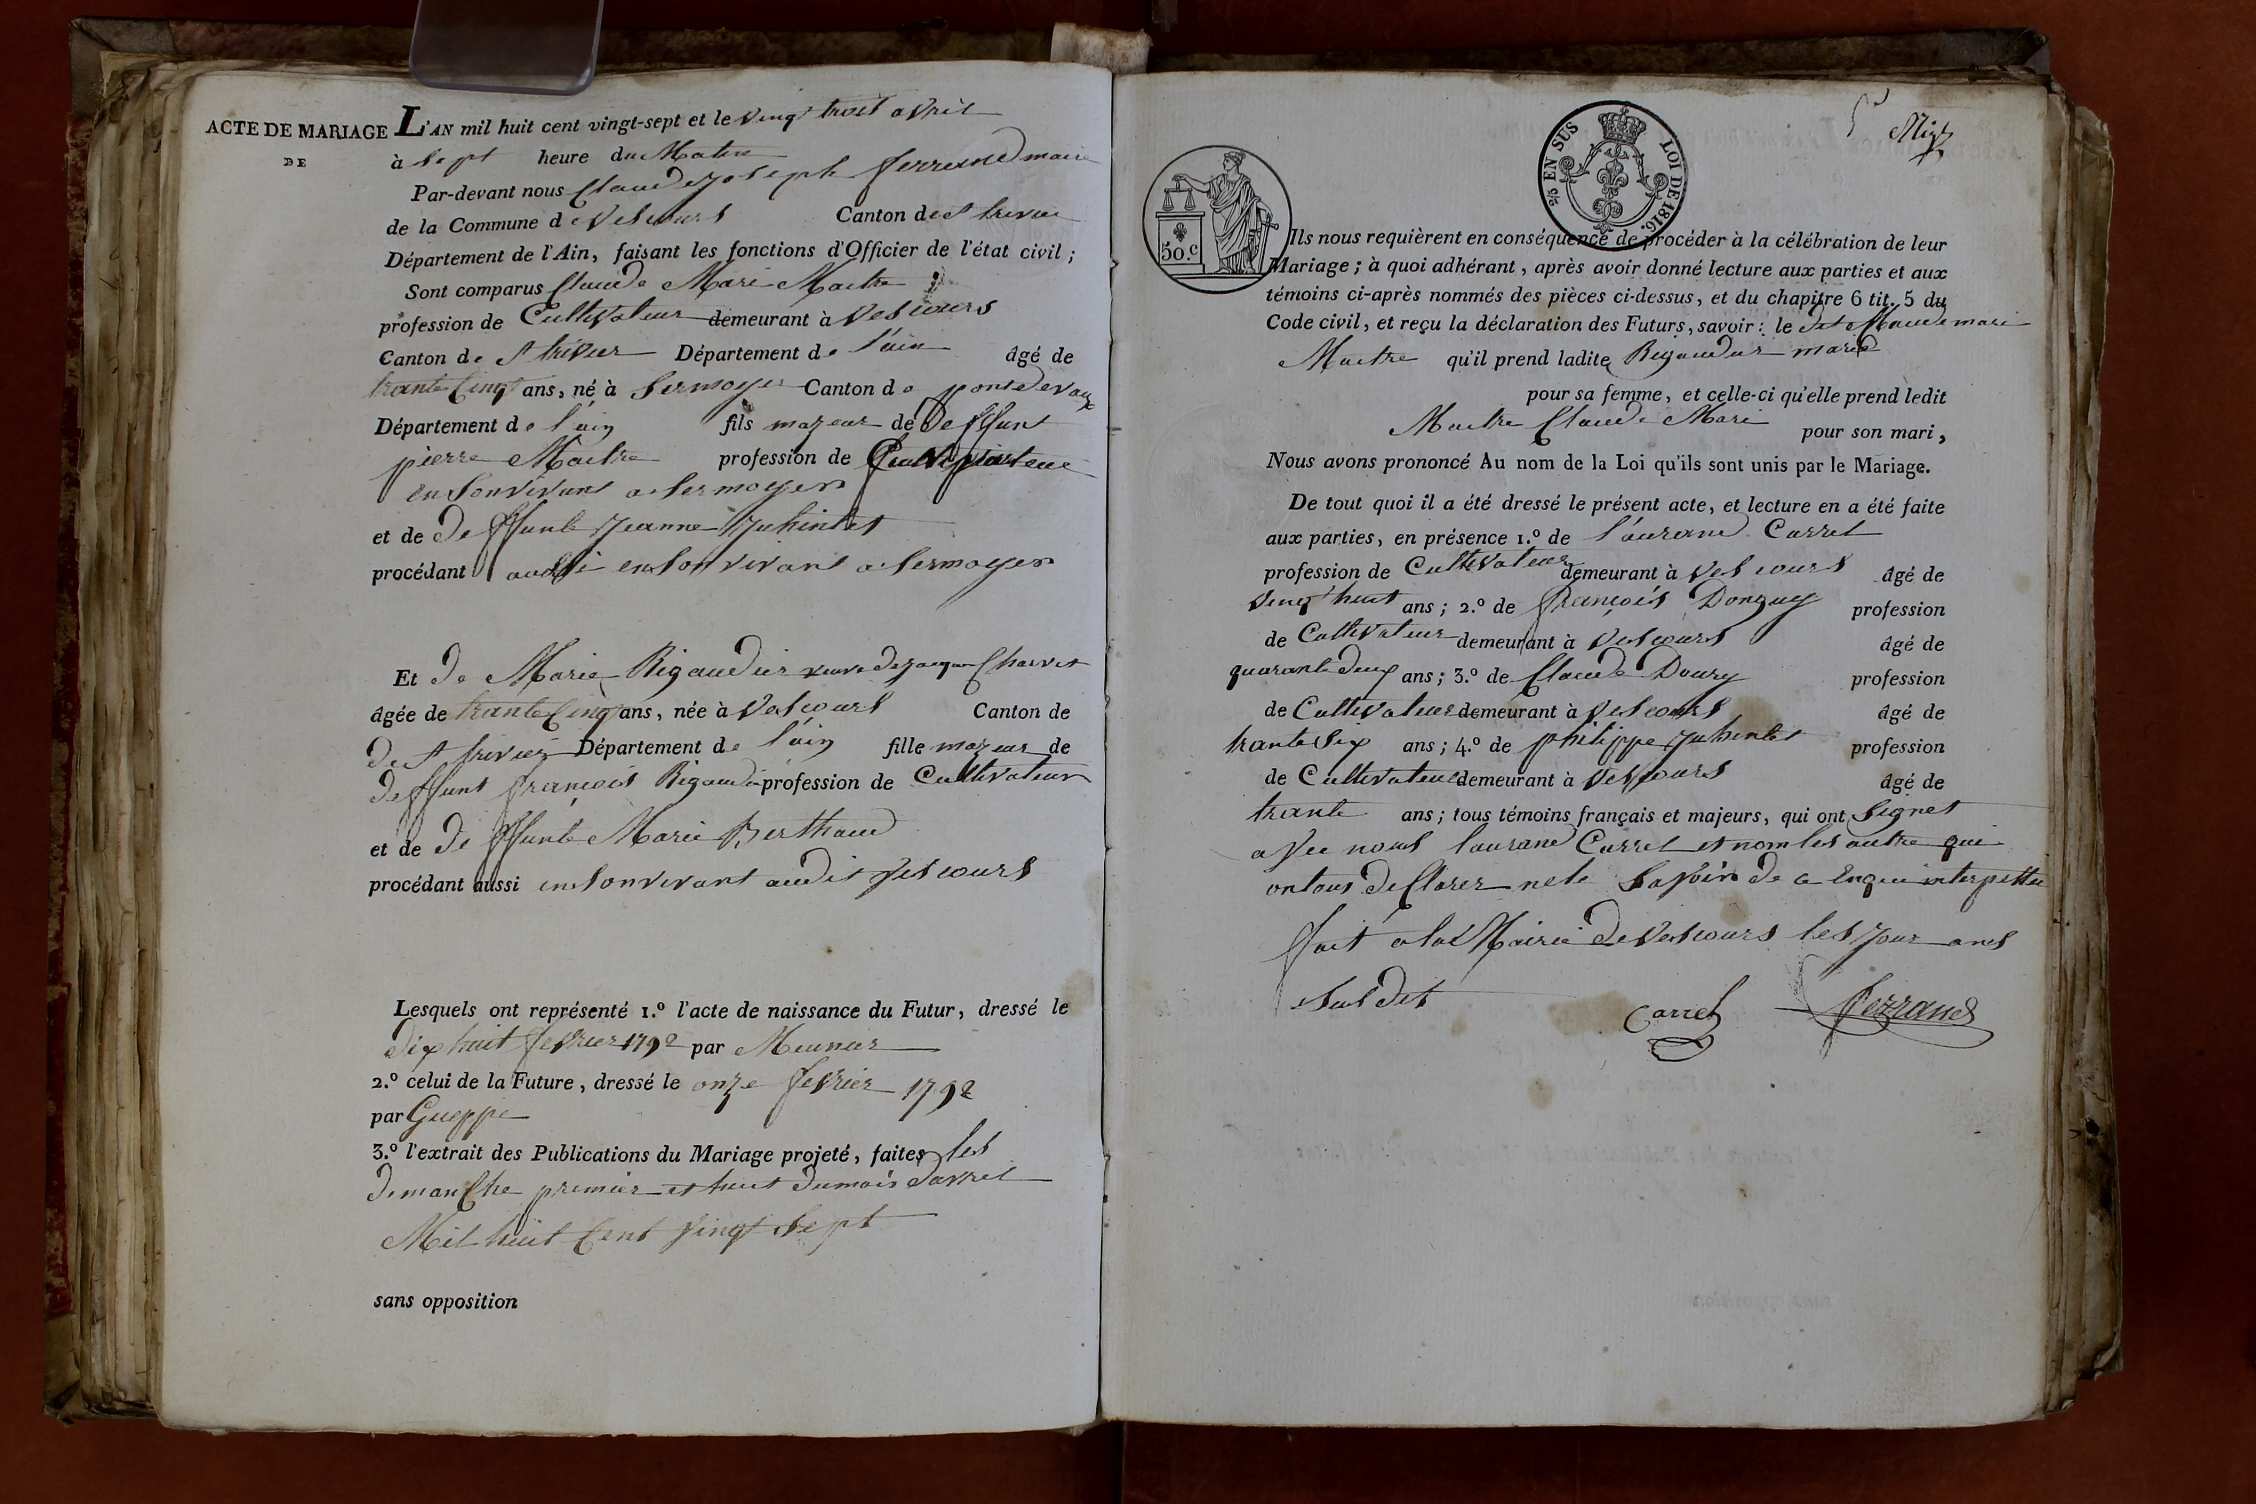 ACTE DE MARIAGE
DE
L'AN mil huit cent vingt-sept et le vingt trois avril
à sept heure du Matin
Par-devant nous Claude joseph ferrand maire
de la Commune de Vescours Canton de st trivier
Département de l'Ain, faisant les fonctions d'Officier de l'état civil ;
Sont comparus Claude Marie Maitre
profession de Cultivateur demeurant à Vescours
Canton de st trivier Département de l'ain âgé de
trante Cinq ans, né à Sermoyer Canton de pontdevaux
Département de l'ain fils majeur de deffunt
pierre Maitre profession de Cultivateur
en son vivant a Sermoyer
et de deffunte jeanne juhintet
procédant aussi en son vivant a Sermoyer
Et de Marie Rigaudier veuve de jacque Charvet
âgée de trante Cinq ans, née à Vescours Canton de
de st trivier Département de l'ain fille majeur de
deffunt françois Rigaudier profession de Cultivateur
et de deffunte Marie Berthaud
procédant aussi en son vivant audit Vescours
Lesquels ont représenté 1.º l'acte de naissance du Futur, dressé le
dix huit fevrier 1792 par Meunier
2.º celui de la Future, dressé le onze fevrier 1792
par Gueppe
3.º l'extrait des Publications du Mariage projeté, faites les
dimanche premier et huit du mois davril
Mil huit Cent vingt sept
sans opposition
50.c
2/5 EN SUS LOI DE 1816.
Ils nous requièrent en conséquence de procéder à la célébration de leur
Mariage ; à quoi adhérant, après avoir donné lecture aux parties et aux
témoins ci-après nommés des pièces ci-dessus, et du chapitre 6 tit. 5 du
Code civil, et reçu la déclaration des Futurs, savoir : le dit Claude mari
Maitre qu'il prend ladite Rigaudier marie
pour sa femme, et celle-ci qu'elle prend ledit
Maitre Claude Mari pour son mari,
Nous avons prononcé Au nom de la Loi qu'ils sont unis par le Mariage.
De tout quoi il a été dressé le présent acte, et lecture en a été faite
aux parties, en présence 1.º de l'aurand Carrel
profession de Cultivateur demeurant à Vescours âgé de
vingt huit ans ; 2.º de françois Donguy profession
de Cultivateur demeurant à Vescours âgé de
quarante deux ans ; 3.º de Claude Doury profession
de Cultivateur demeurant à Vescours âgé de
trante Six ans ; 4.º de philippe juhintet profession
de Cultivateur demeurant à Vescours âgé de
trante ans ; tous témoins français et majeurs, qui ont Signet
avec nous laurand Carrel et nom les autre qui
ont tous declarer ne le Savoir de ce Enqui interpelle
fait a la Mairie de Vescours les jour ans
susdit
Carrel ferrand